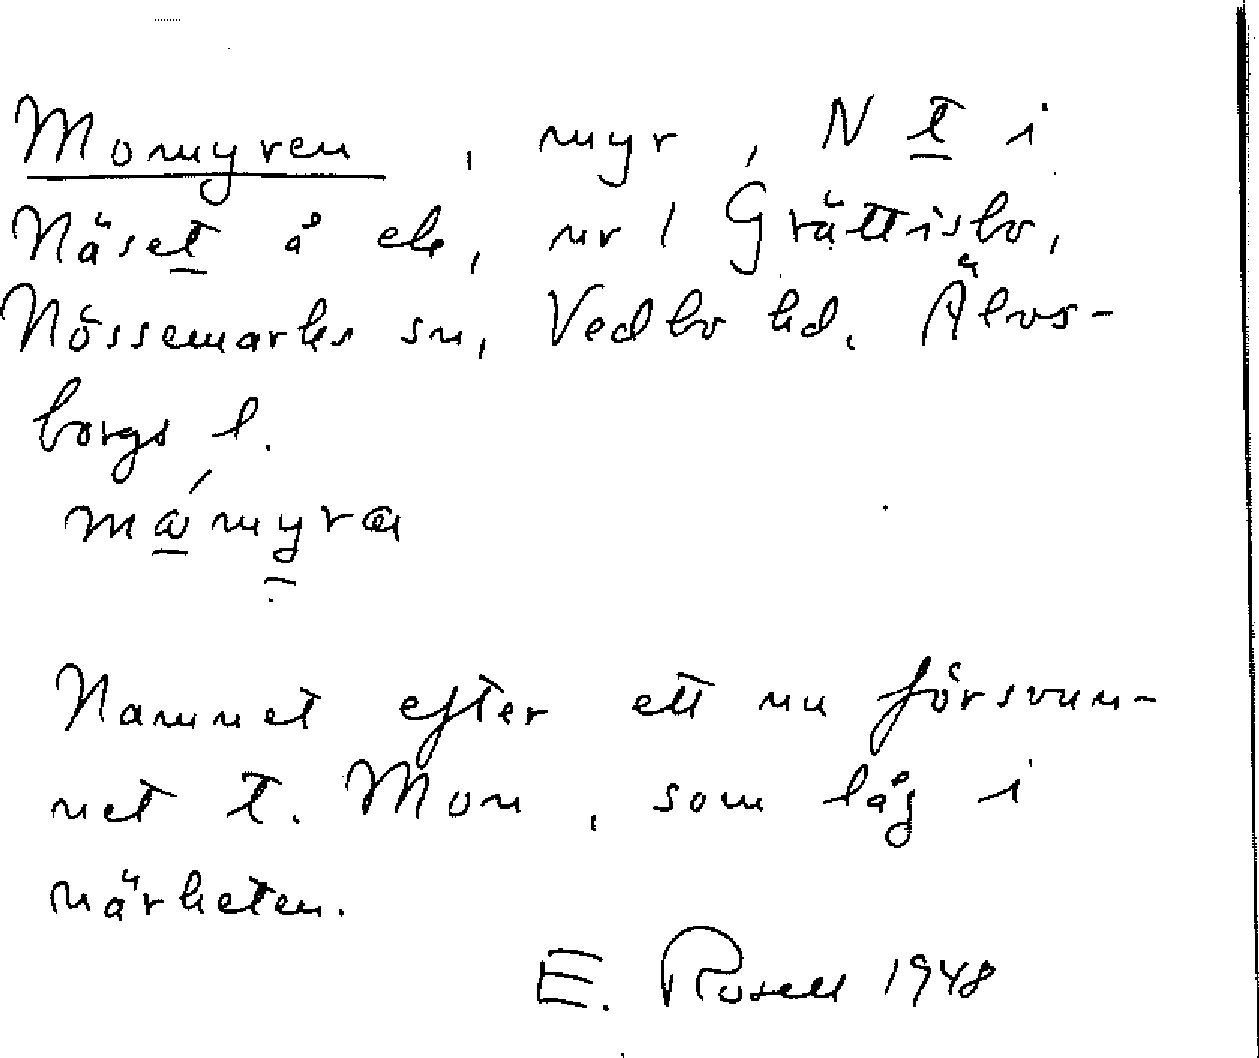 Momyren, myr, N t i
Näset å ek, nr 1 Grättisbo,
Nössemarks sn, Vedbo hd. Älvs-
borgs l.
Namnet efter ett nu försvun-
net t. Mon, som låg i
närheten.
E. Rosell 1948